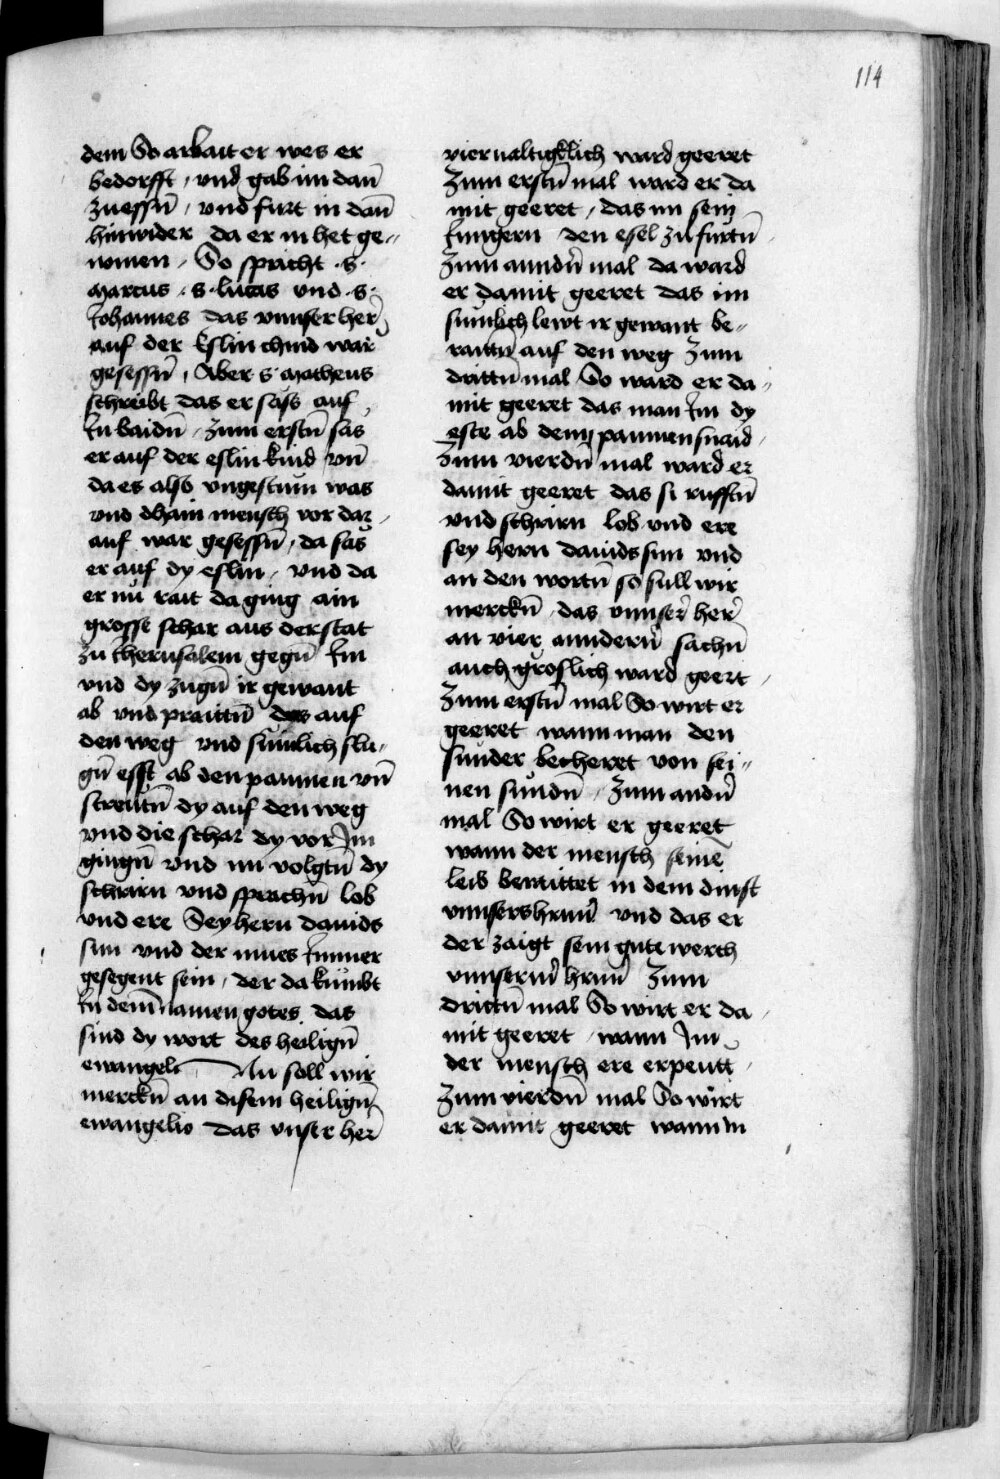 114
dem So arbait er wes er
bedorfft / und gab im dañ
zu essñ / und furt in dañ
hinwider da er in het ge-
nomen / So spricht ·s·
Marcus ·s· lucas und ·s·
Johannes das unnser her
auf der Eslin chind war
gesessñ / Aber s· Matheus
schreibt das er sass auf
In baidñ / zum erstñ sas
er auf der eslin kind uñ
da es also ungestum was
und dhain mensch vor dar
auf war gesessñ / da sas
er auf dy eslin / und da
er nu rait da ging ain
grosse schar aus der stat
zu Jherusalem gegñ Im
und dy zugñ ir gewant
ab und praittñ das auf
den weg und sumlich slu-
gñ esst ab den paumen uñ
streutñ dy auf den weg
und die schar dy vor Im
gingñ und im volgtñ dy
schrirn und sprachñ lob
und ere Sey hern davids
sun und der mues Immer
gesegent sein / der da kumbt
In dem namen gotes das
sind dy wort des heiligñ
ewangeli Nu soll wir
merckñ an disem heiligñ
ewangelio das unser her
viervaltigklich ward geeret
Zum erstñ mal ward er da
mit geeret / das im sein
Jungern den esel zu furtñ
Zum anndñ mal da ward
er damit geeret das im
sumlich lewt ir gewant be-
raittñ auf den weg Zum
drittñ mal So ward er da-
mit geeret das man Im dy
este ab dem paumen snaid
Zum vierdñ mal ward er
damit geeret das si rufftñ
und schrirn lob und ere
sey hern davids sun und
an den wortñ so sull wir
merckñ das unnser her
an vier annderñ sachñ
auch groslich ward geert
Zum erstñ mal So wirt er
geeret wann man den
sunder becheret von sei-
nen sundñ / Zum andñ
mal So wirt er geeret
wann der mensch seinē
leib bemittet in dem dinst
unnsers hrnñ und das er
der zaigt sein gute werch
unnserm hrnñ Zum
drittñ mal So wirt er da
mit geeret / wann Im
der mensch ere erpeutt
Zum vierdñ mal So wirt
er damit geeret wann In